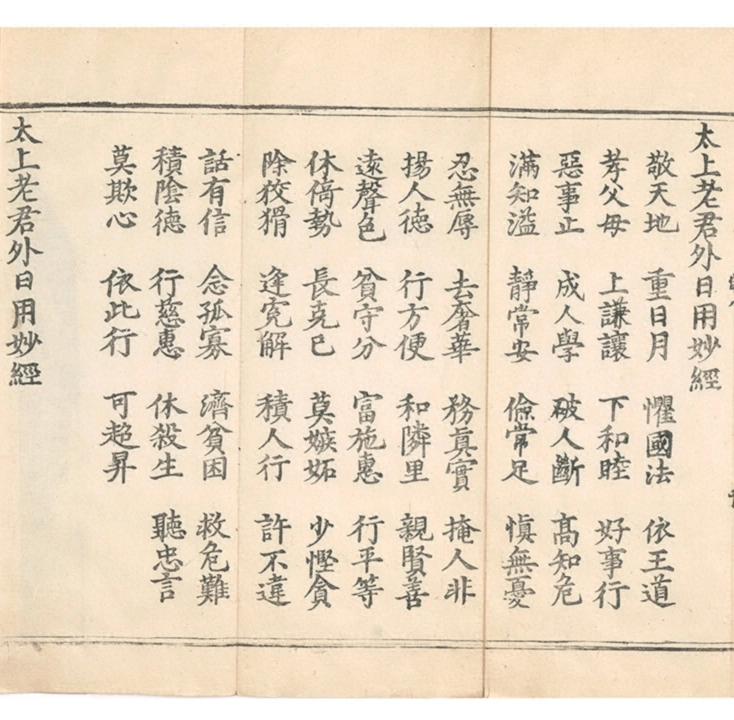 太上老君外日用妙經
敬天地 重日月 懼國法 依王道
孝父母 上謙讓 下和睦 好事行
惡事止 成人學 破人斷 高知危
滿知溢 靜常安 儉常足 慎無憂
忍無辱 去奢華 務真實 掩人非
揚人德 行方便 和隣里 親賢善
遠聲色 貧守分 富施惠 行平等
休倚勢 長克己 莫嫉妬 少慳貪
除狡猾 逢寃解 積人行 許不違
話有信 念孤寡 濟貧困 救危難
積陰德 行慈惠 休殺生 聽忠言
莫欺心 依此行 可超昇
太上老君外日用妙經